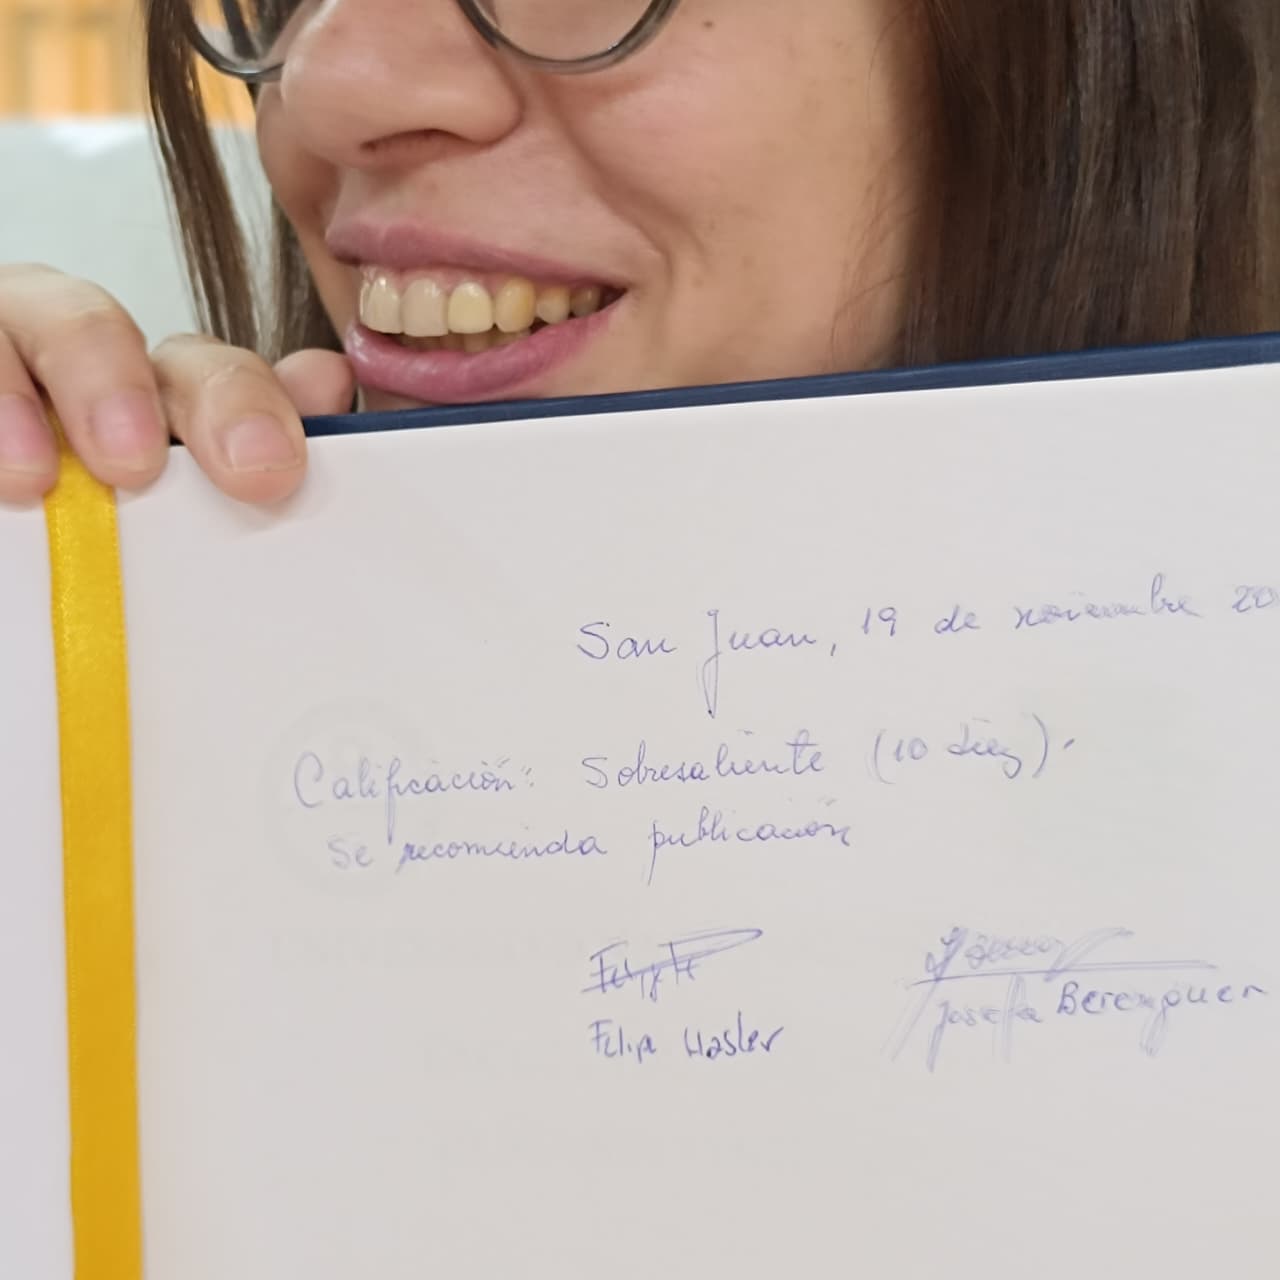 San Juan, 19 de noviembre 20
Calificación: Sobresaliente (10 diez).
Se recomienda publicación
Felip Hasler
Josefa Berenguer